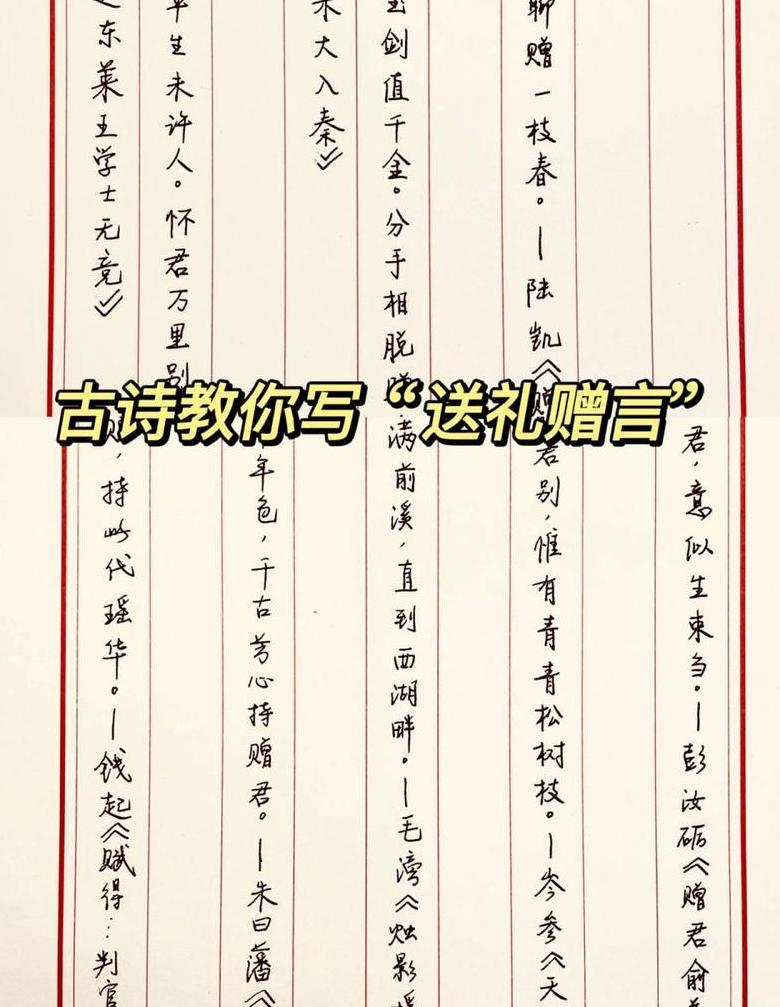 聊赠一枝春。—陆凯《赠
剑值千金。分手相脱赠
大入秦》
平生未许人。怀君万里别
东莱王学士无竞》
古诗教你写“送礼赠言”
君，意似生束刍。—彭汝砺《赠君俞
君别，惟有青青松树枝。—岑参《天
满前溪，直到西湖畔。—毛滂《烛影摇
年色，千古芳心持赠君。—朱曰藩《
，持此代瑶华。—钱起《赋得…判官